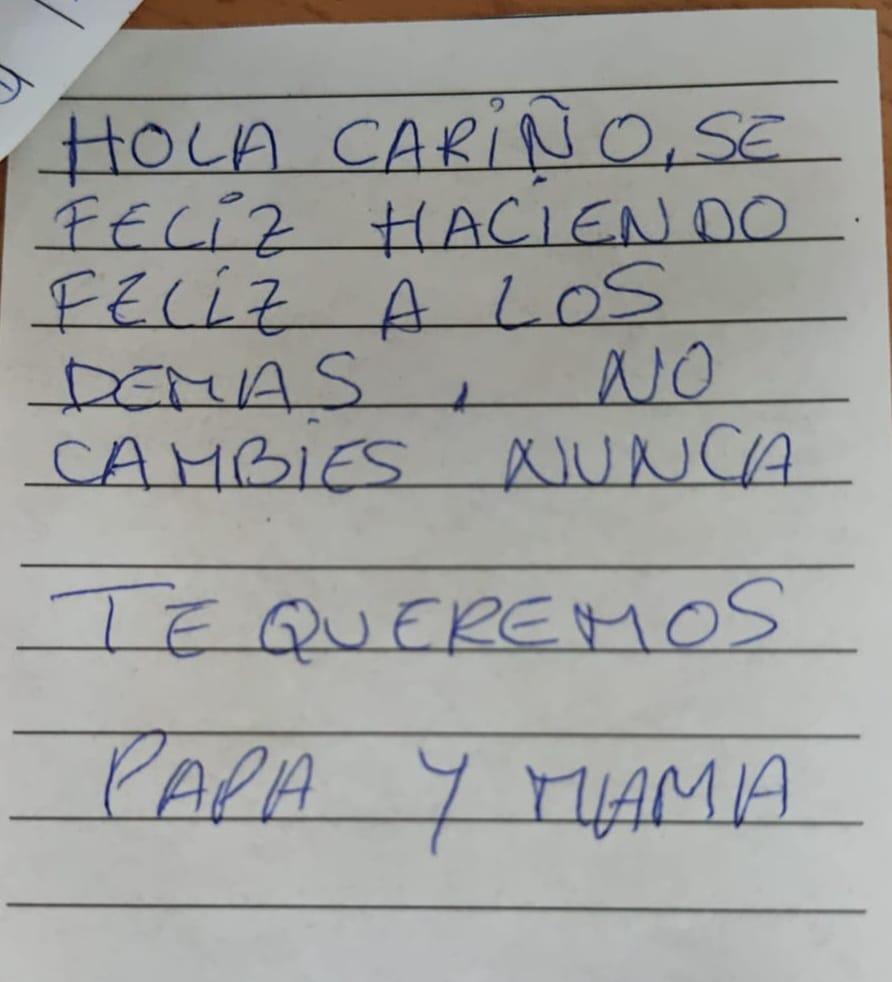 HOLA CARIÑO, SE
FELIZ HACIENDO
FELIZ A LOS
DEMAS , NO
CAMBIES NUNCA
TE QUEREMOS
PAPA Y MAMA